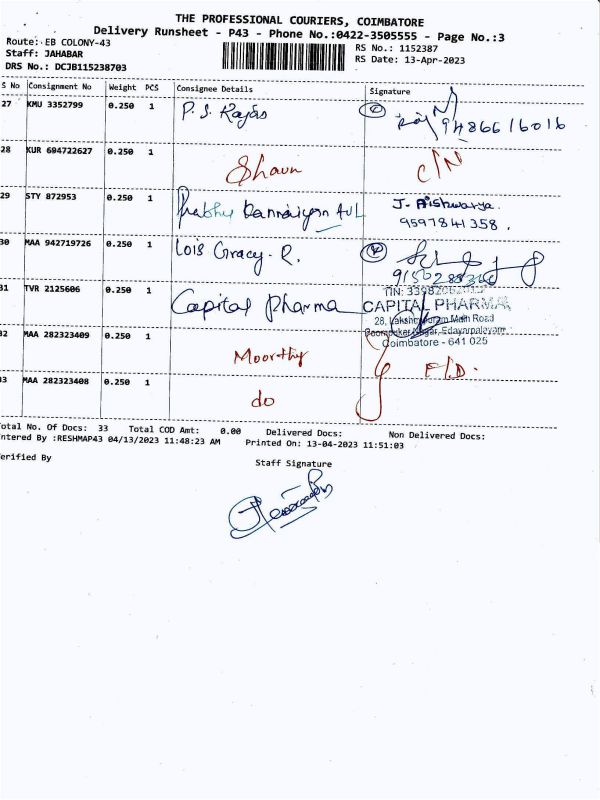 THE PROFESSIONAL COURIERS, COIMBATORE
Delivery Runsheet - P43 - Phone No.:0422-3505555 - Page No.:3
Route: EB COLONY-43
Staff: JAHABAR
DRS No.: DCJB115238703
RS No.: 1152387
RS Date: 13-Apr-2023
S No Consignment No Weight PCS Consignee Details Signature
27 KMU 3352799 0.250 1 P. S. Rajas 9486616016
28 KUR 694722627 0.250 1 Shaun C/N
29 STY 872953 0.250 1 Prabhu J. Aishwarya.
9597841358.
30 MAA 942719726 0.250 1 Lois Gracy. R.
31 TVR 2125606 0.250 1 Capital Pharma
CAPITAL PHARMA
28, Main Road
Nagar, Edayarpalayam
Coimbatore - 641 025
32 MAA 282323409 0.250 1 Moorthy F/D.
33 MAA 282323408 0.250 1 do
Total No. Of Docs: 33 Total COD Amt: 0.00 Delivered Docs: Non Delivered Docs:
ntered By :RESHMAP43 04/13/2023 11:48:23 AM Printed On: 13-04-2023 11:51:03
erified By
Staff Signature